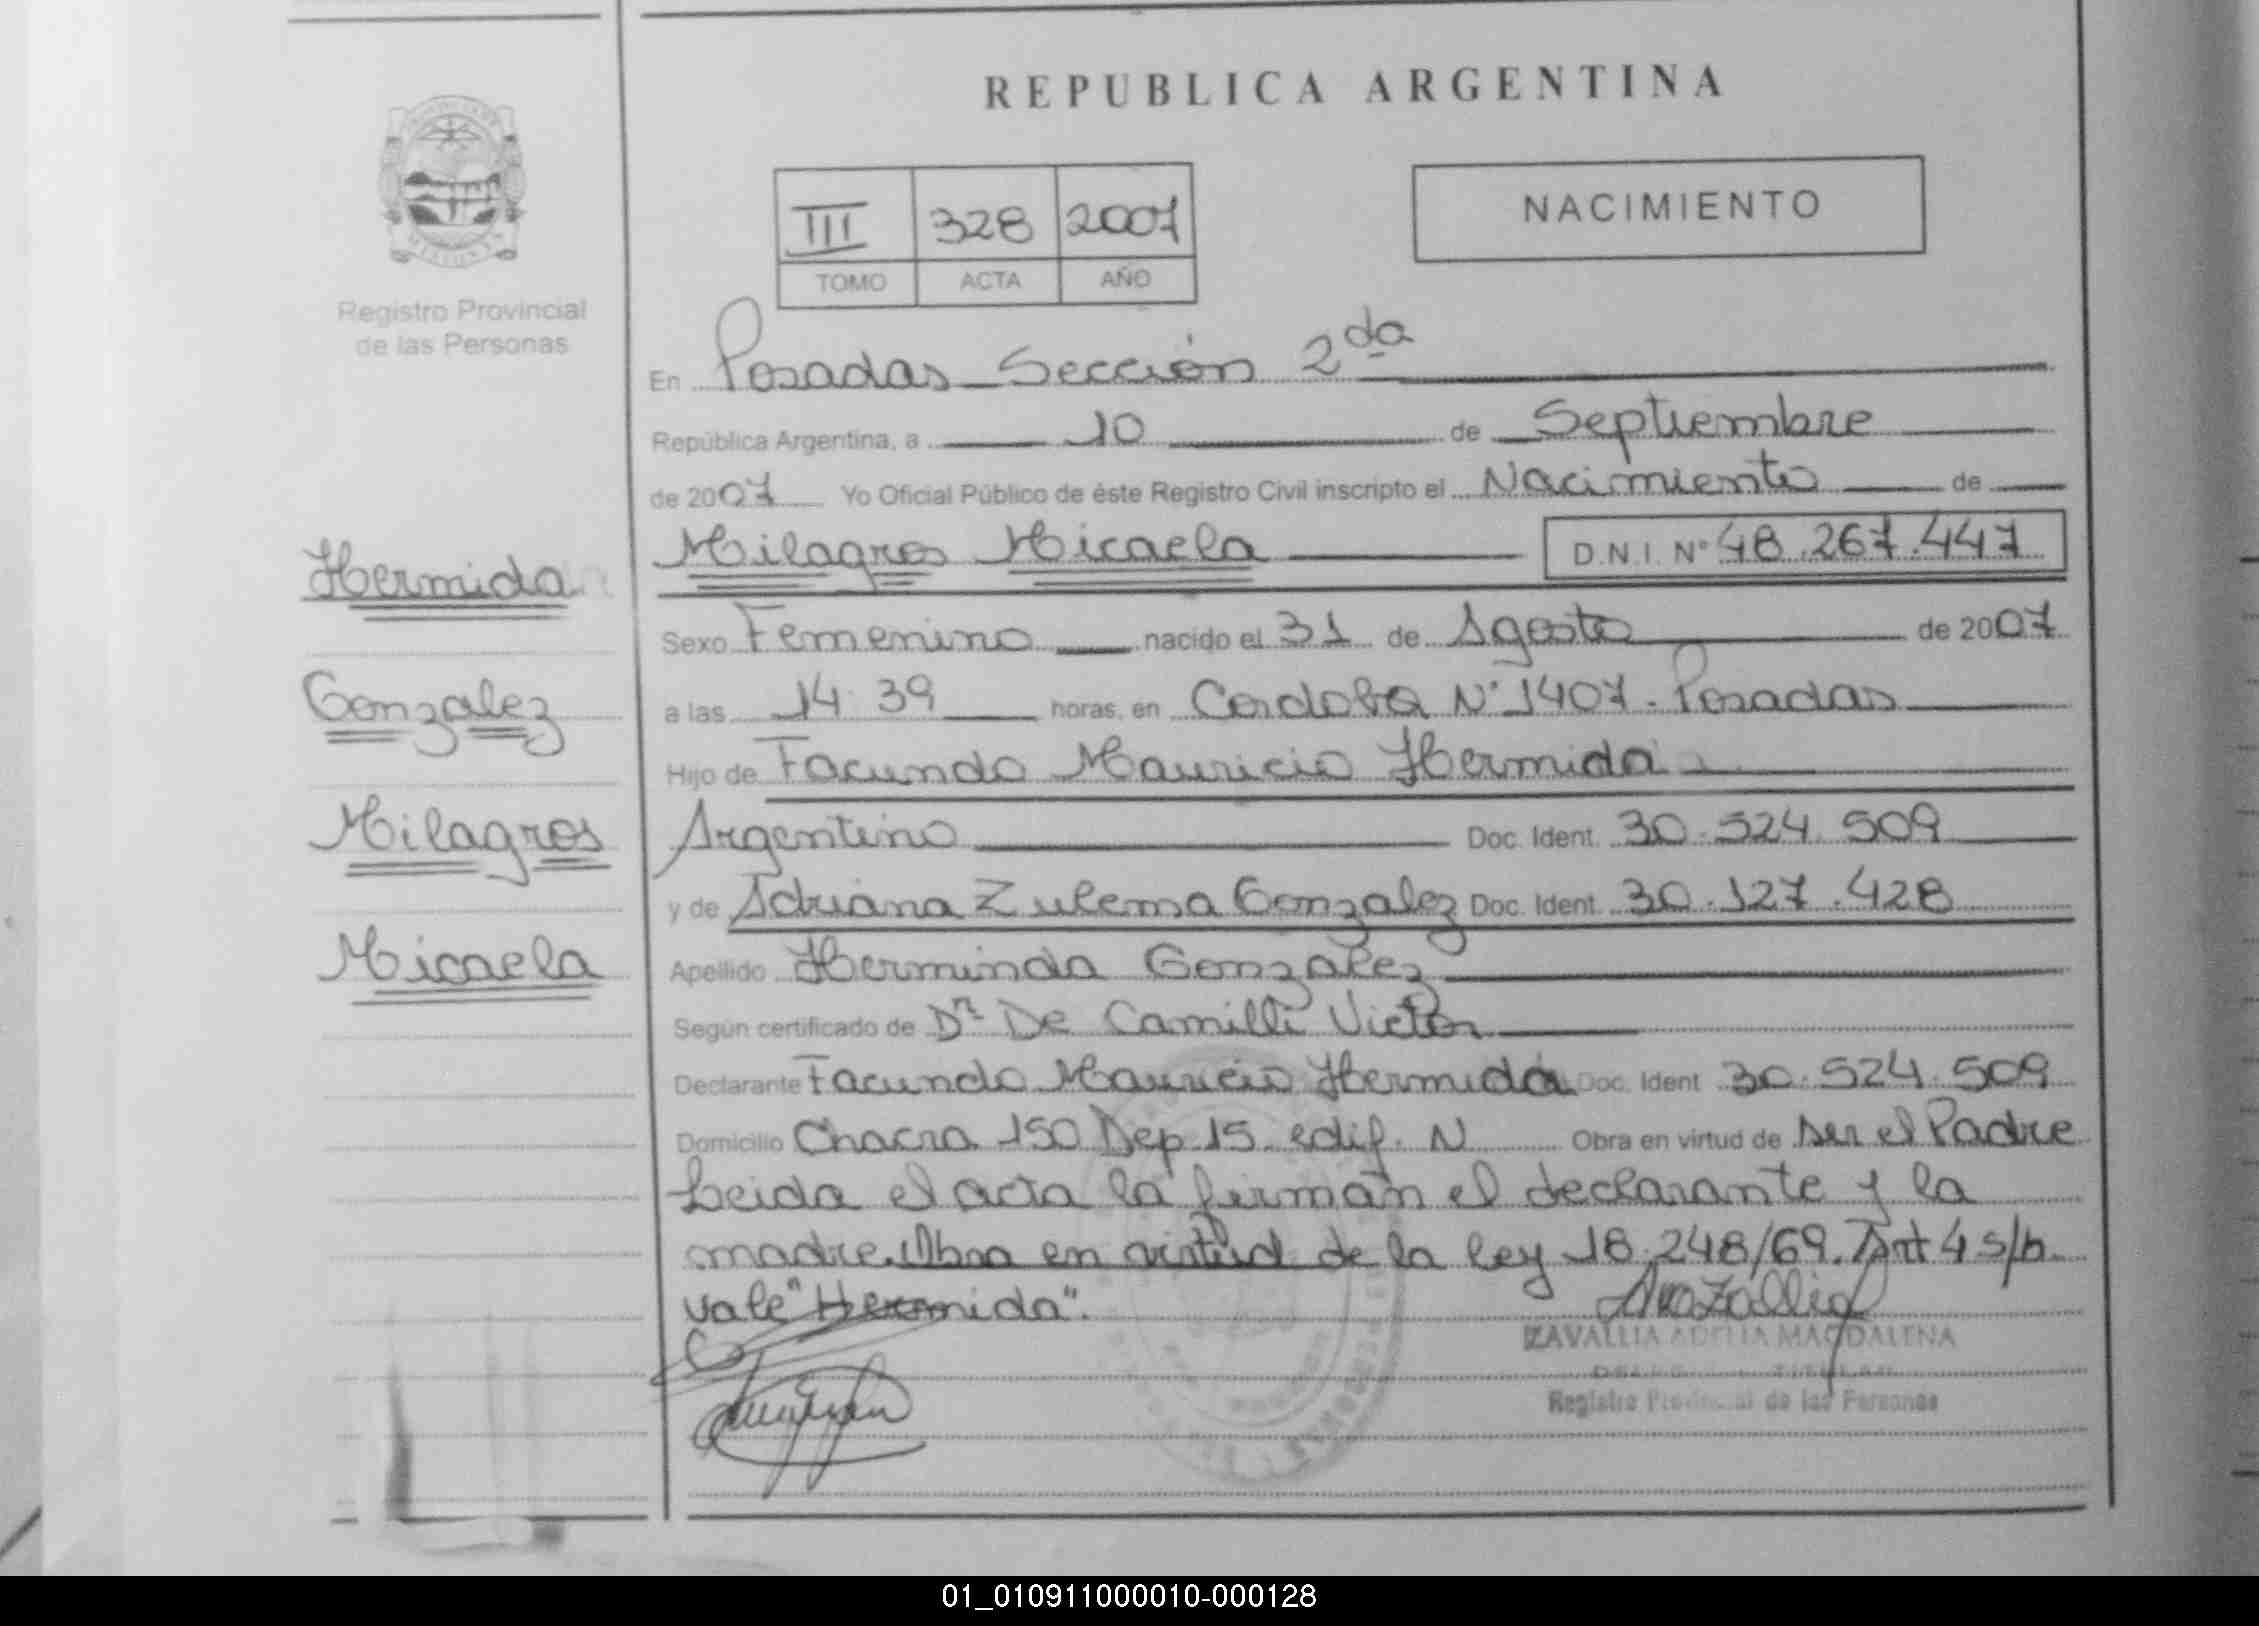 REPUBLICA ARGENTINA
III 328 2007
TOMO ACTA AÑO
NACIMIENTO
Registro Provincial
de las Personas
Hermida
Gonzalez
Milagros
Micaela
En Posadas Sección 2da
República Argentina, a 10 de Septiembre
de 2007 Yo Oficial Público de éste Registro Civil inscripto el Nacimiento de
Milagros Micaela D.N.I. Nº 48.267.447
Sexo Femenino nacido el 31 de Agosto de 2007
a las 14 39 horas, en Cordoba Nº 1407. Posadas
Hijo de Facundo Mauricio Hermida
Argentino Doc. Ident. 30.524.509
y de Adriana Zulema Gonzalez Doc. Ident. 30.127.428
Apellido Herminda Gonzalez
Según certificado de Dr. De Camilli Victor
Declarante Facundo Mauricio Hermida Doc. Ident 30.524.509
Domicilio Chacra 150 Dep 15 edif. N Obra en virtud de ser el Padre
Leida el acta la firman el declarante y la
madre. Obra en virtud de la ley 18.248/69. Art 4 s/b.
vale "Hermida".
ZAVALLIA ADELIA MAGDALENA
Registro Provincial de las Personas
01_010911000010-000128